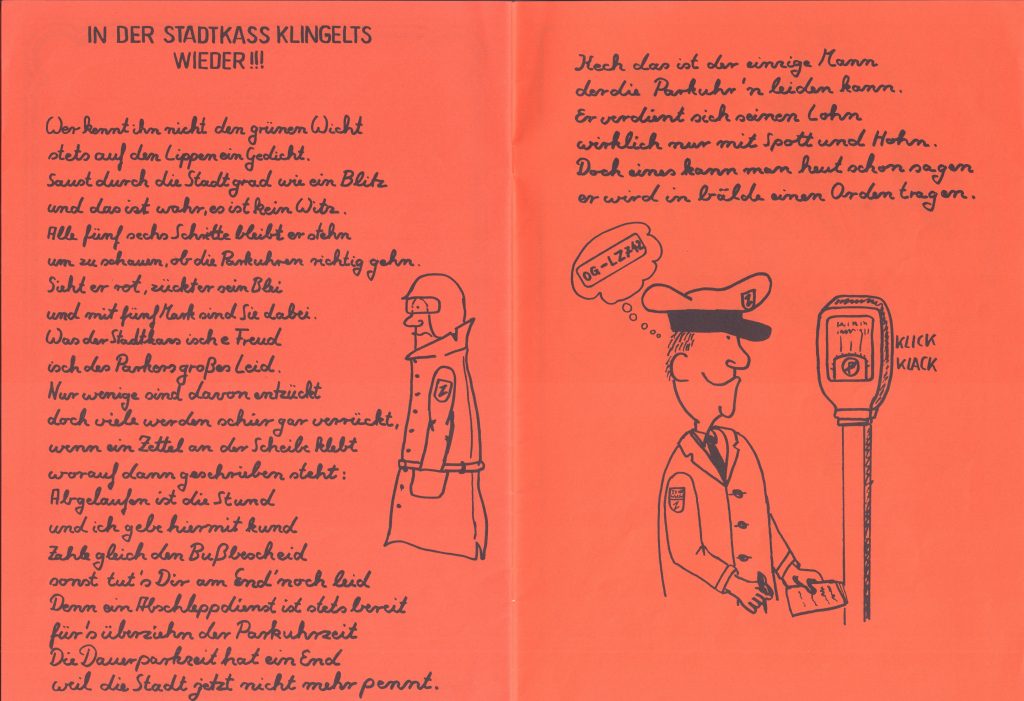 IN DER STADTKASS KLINGELTS
WIEDER!!!
Wer kennt ihn nicht den grünen Wicht
stets auf den Lippen ein Gedicht.
Saust durch die Stadt grad wie ein Blitz
und das ist wahr, es ist kein Witz.
Alle fünf sechs Schritte bleibt er stehn
um zu schauen, ob die Parkuhren richtig gehn.
Sieht er rot, zückt er sein Blei
und mit fünf Mark sind Sie dabei.
Was der Stadtkass isch e Freud
isch des Parkers großes Leid.
Nur wenige sind davon entzückt
doch viele werden schier gar verrückt,
wenn ein Zettel an der Scheibe klebt
worauf dann geschrieben steht:
Abgelaufen ist die Stund
und ich gebe hiermit kund
Zahle gleich den Bußbescheid
sonst tut's Dir am End' noch leid
Denn ein Abschleppdienst ist stets bereit
für's überziehn der Parkuhrzeit
Die Dauerparkzeit hat ein End
weil die Stadt jetzt nicht mehr pennt.
Hech das ist der einzige Mann
der die Parkuhr'n leiden kann.
Er verdient sich seinen Lohn
wirklich nur mit Spott und Hohn.
Doch eines kann man heut schon sagen
er wird in bälde einen Orden tragen.
OG-LZ742
KLICK
KLACK